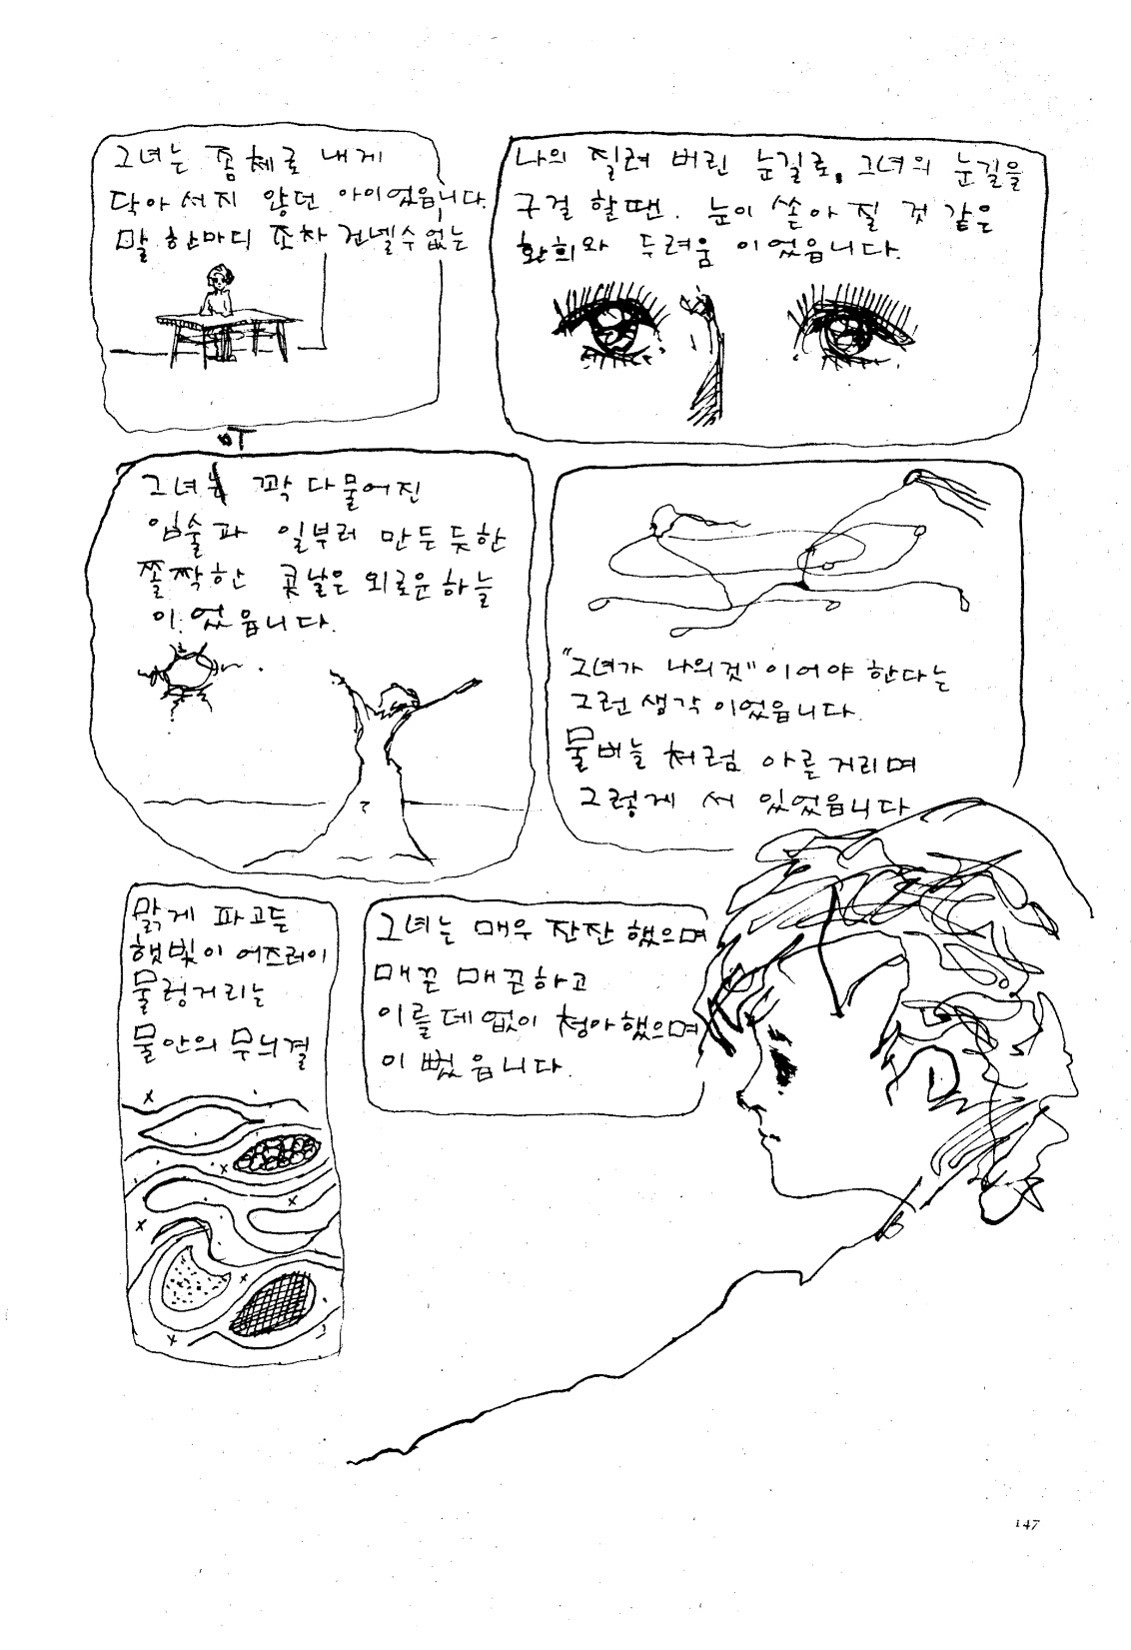 그녀는 좀체로 내게
닥아서지 않던 아이었읍니다.
말 한마디 조차 건넬수 없는
나의 질려 버린 눈길로, 그녀의 눈길을
구걸 할땐. 눈이 쏟아 질 것 같은
환희와 두려움 이었읍니다.
그녀의 꽉 다물어진
입술과 일부러 만든듯한
쫄짝한 콧날은 외로운하늘
이었읍니다.
"그녀가 나의것" 이어야 한다는
그런 생각 이었읍니다.
물비늘 처럼 아른거리며
그렇게 서 있었읍니다
맑게 파고든
햇빛이 어즈러이
물렁거리는
물안의 무늬결
그녀는 매우 잔잔했으며
매끈 매끈하고
이를데없이 청아했으며
이뻤읍니다.
147